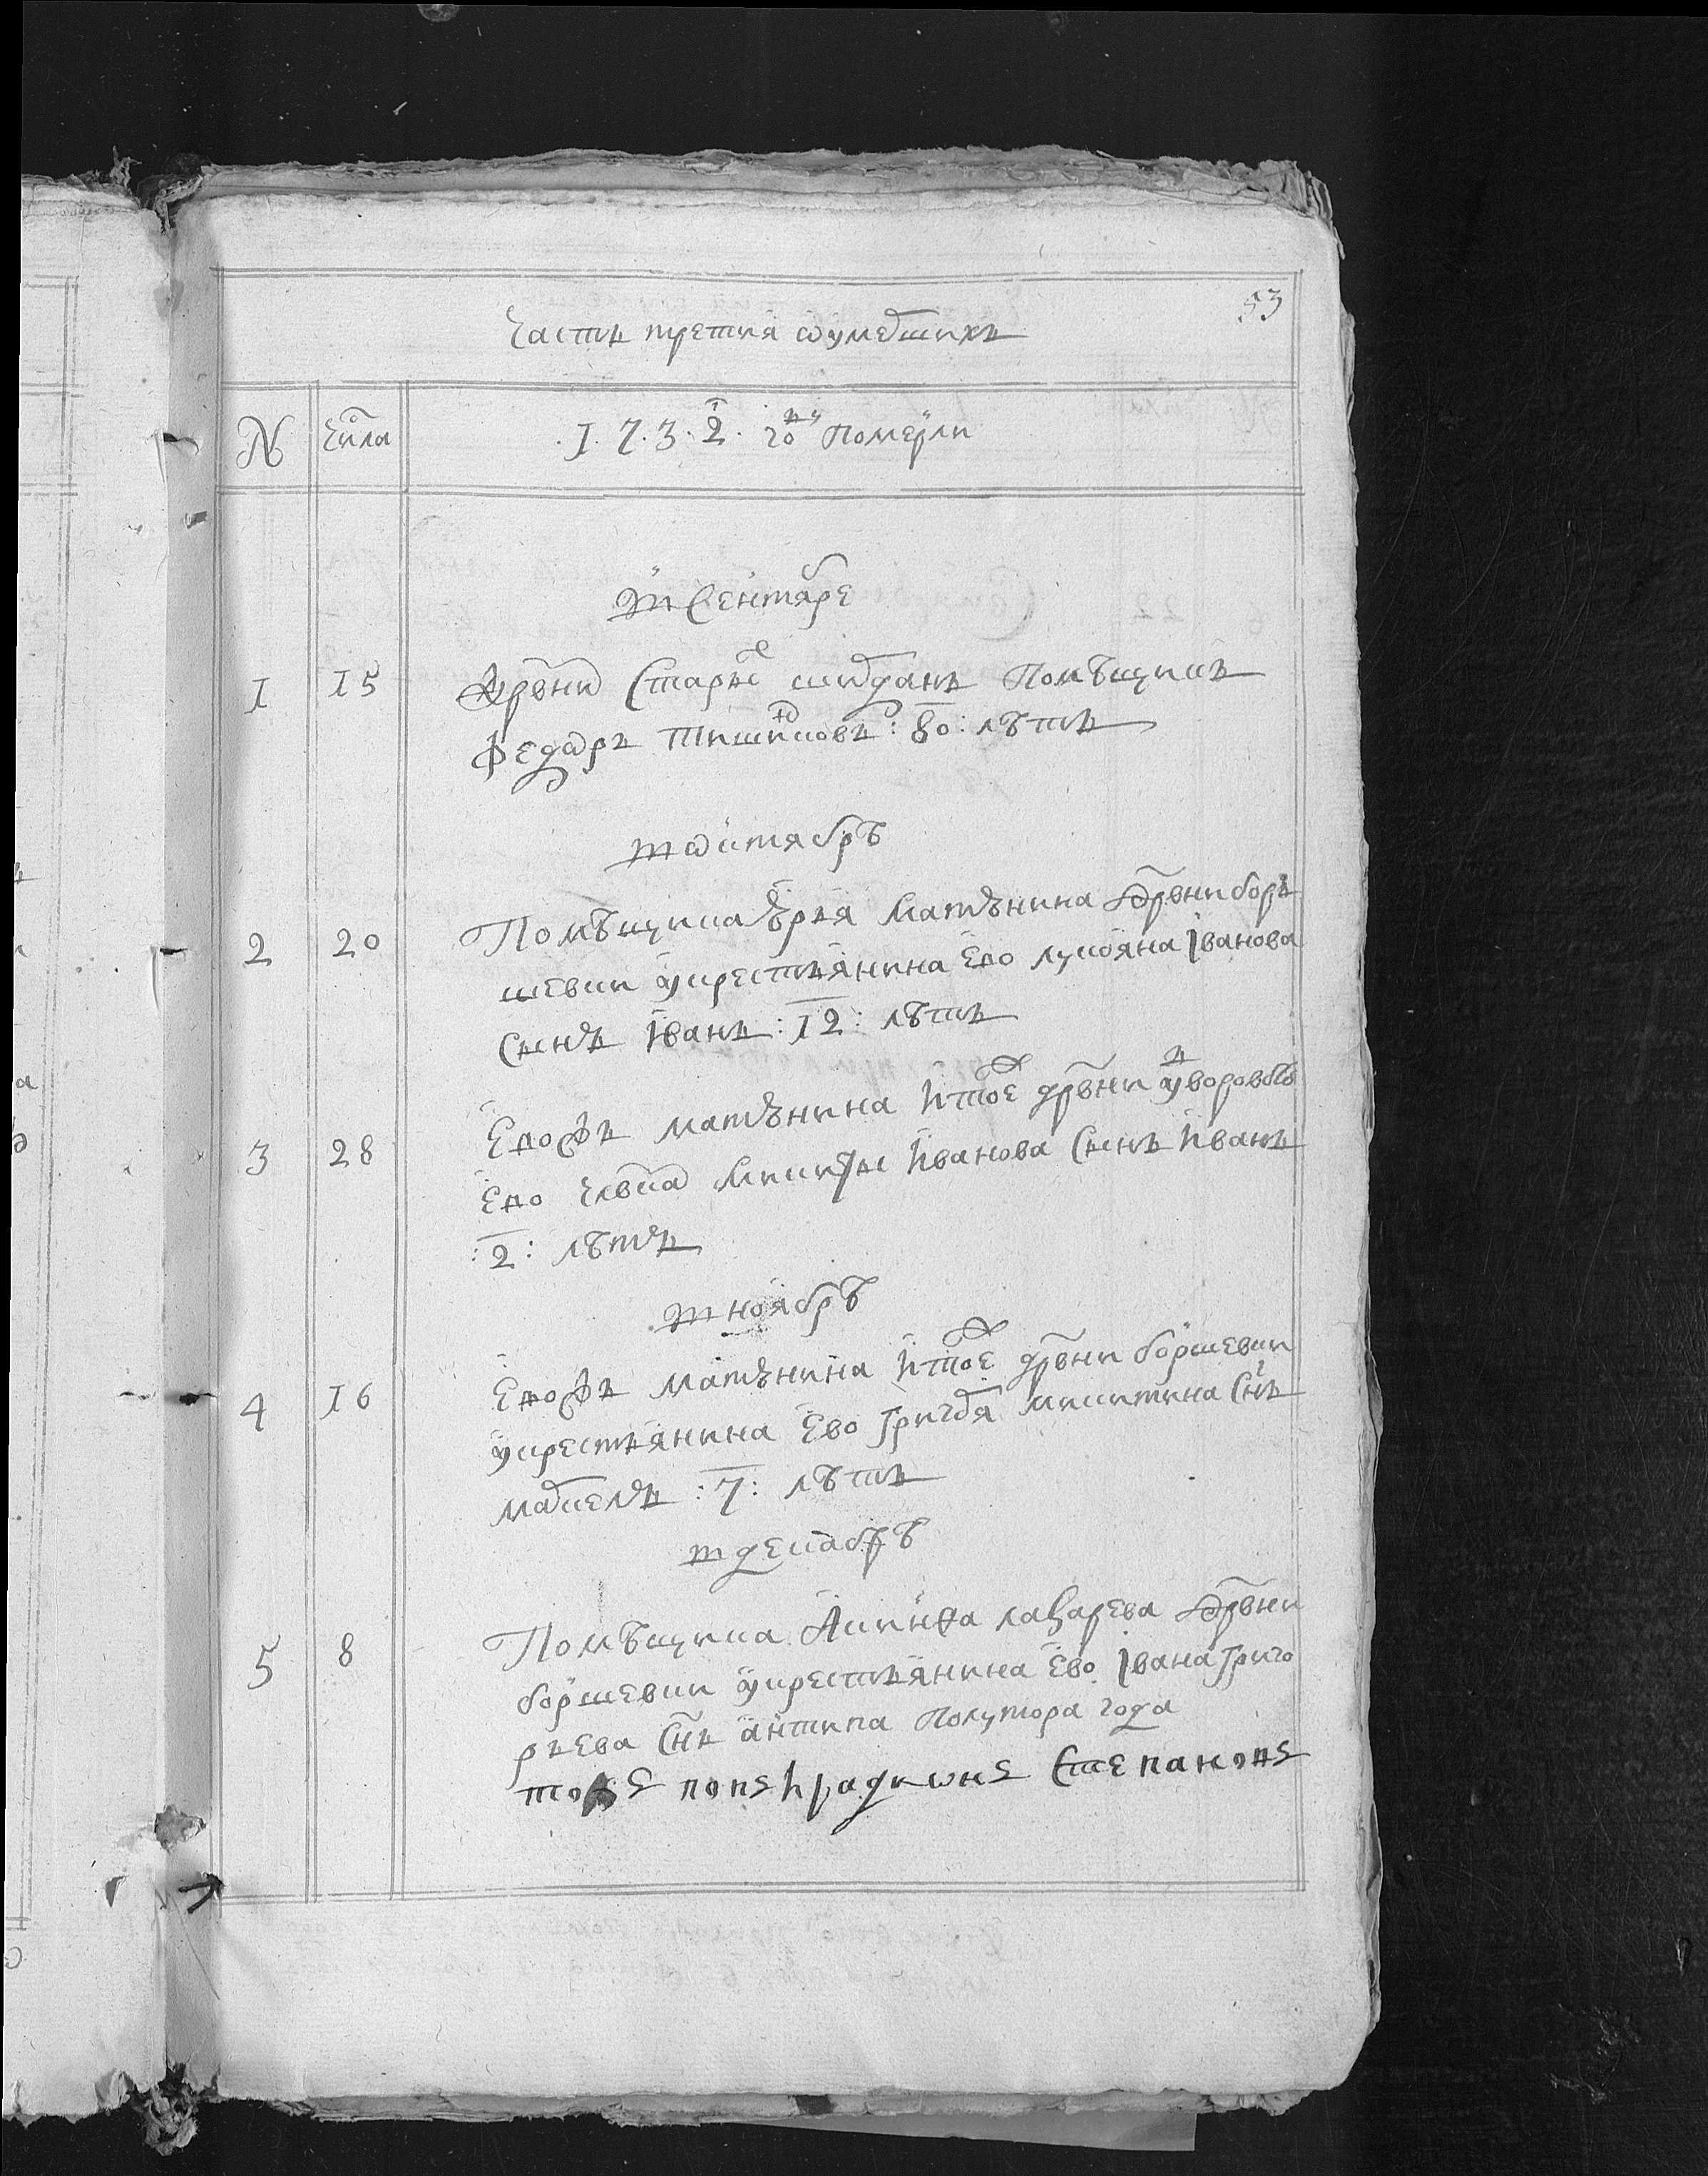 53
Часть третия ѡ умершихъ
N числа 1732 го году Померли
въ Сентябре
1 15 деревни Старые шидан Помѣщикъ
Федѡръ Тишинковъ : 80 : лѣтъ
в ѡктябрѣ
2 20 Помѣщика Юрья Матѣнина деревни борь
шевки у крестьянина ево лукьяна Іванова
сынъ Іванъ : 12 : лѣтъ
3 28 Егоръ матѣнина и тое деревни у дворового
ево человека Микиты Иванова сынъ Иванъ
: 2 : лѣтъ
в ноябрѣ
4 16 Егоръ матѣнина и тое деревни боршевки
у крестьянина ево григорья микитина снъ
маѯелъ : 7 : лѣтъ
в декабрѣ
5 8 Помѣщика Акинѳа лазарева деревни
боршевки у крестьянина ево Івана Григо
рьева снъ антипа Полутора года
тоже попъ Ірадиѡнъ Степановъ